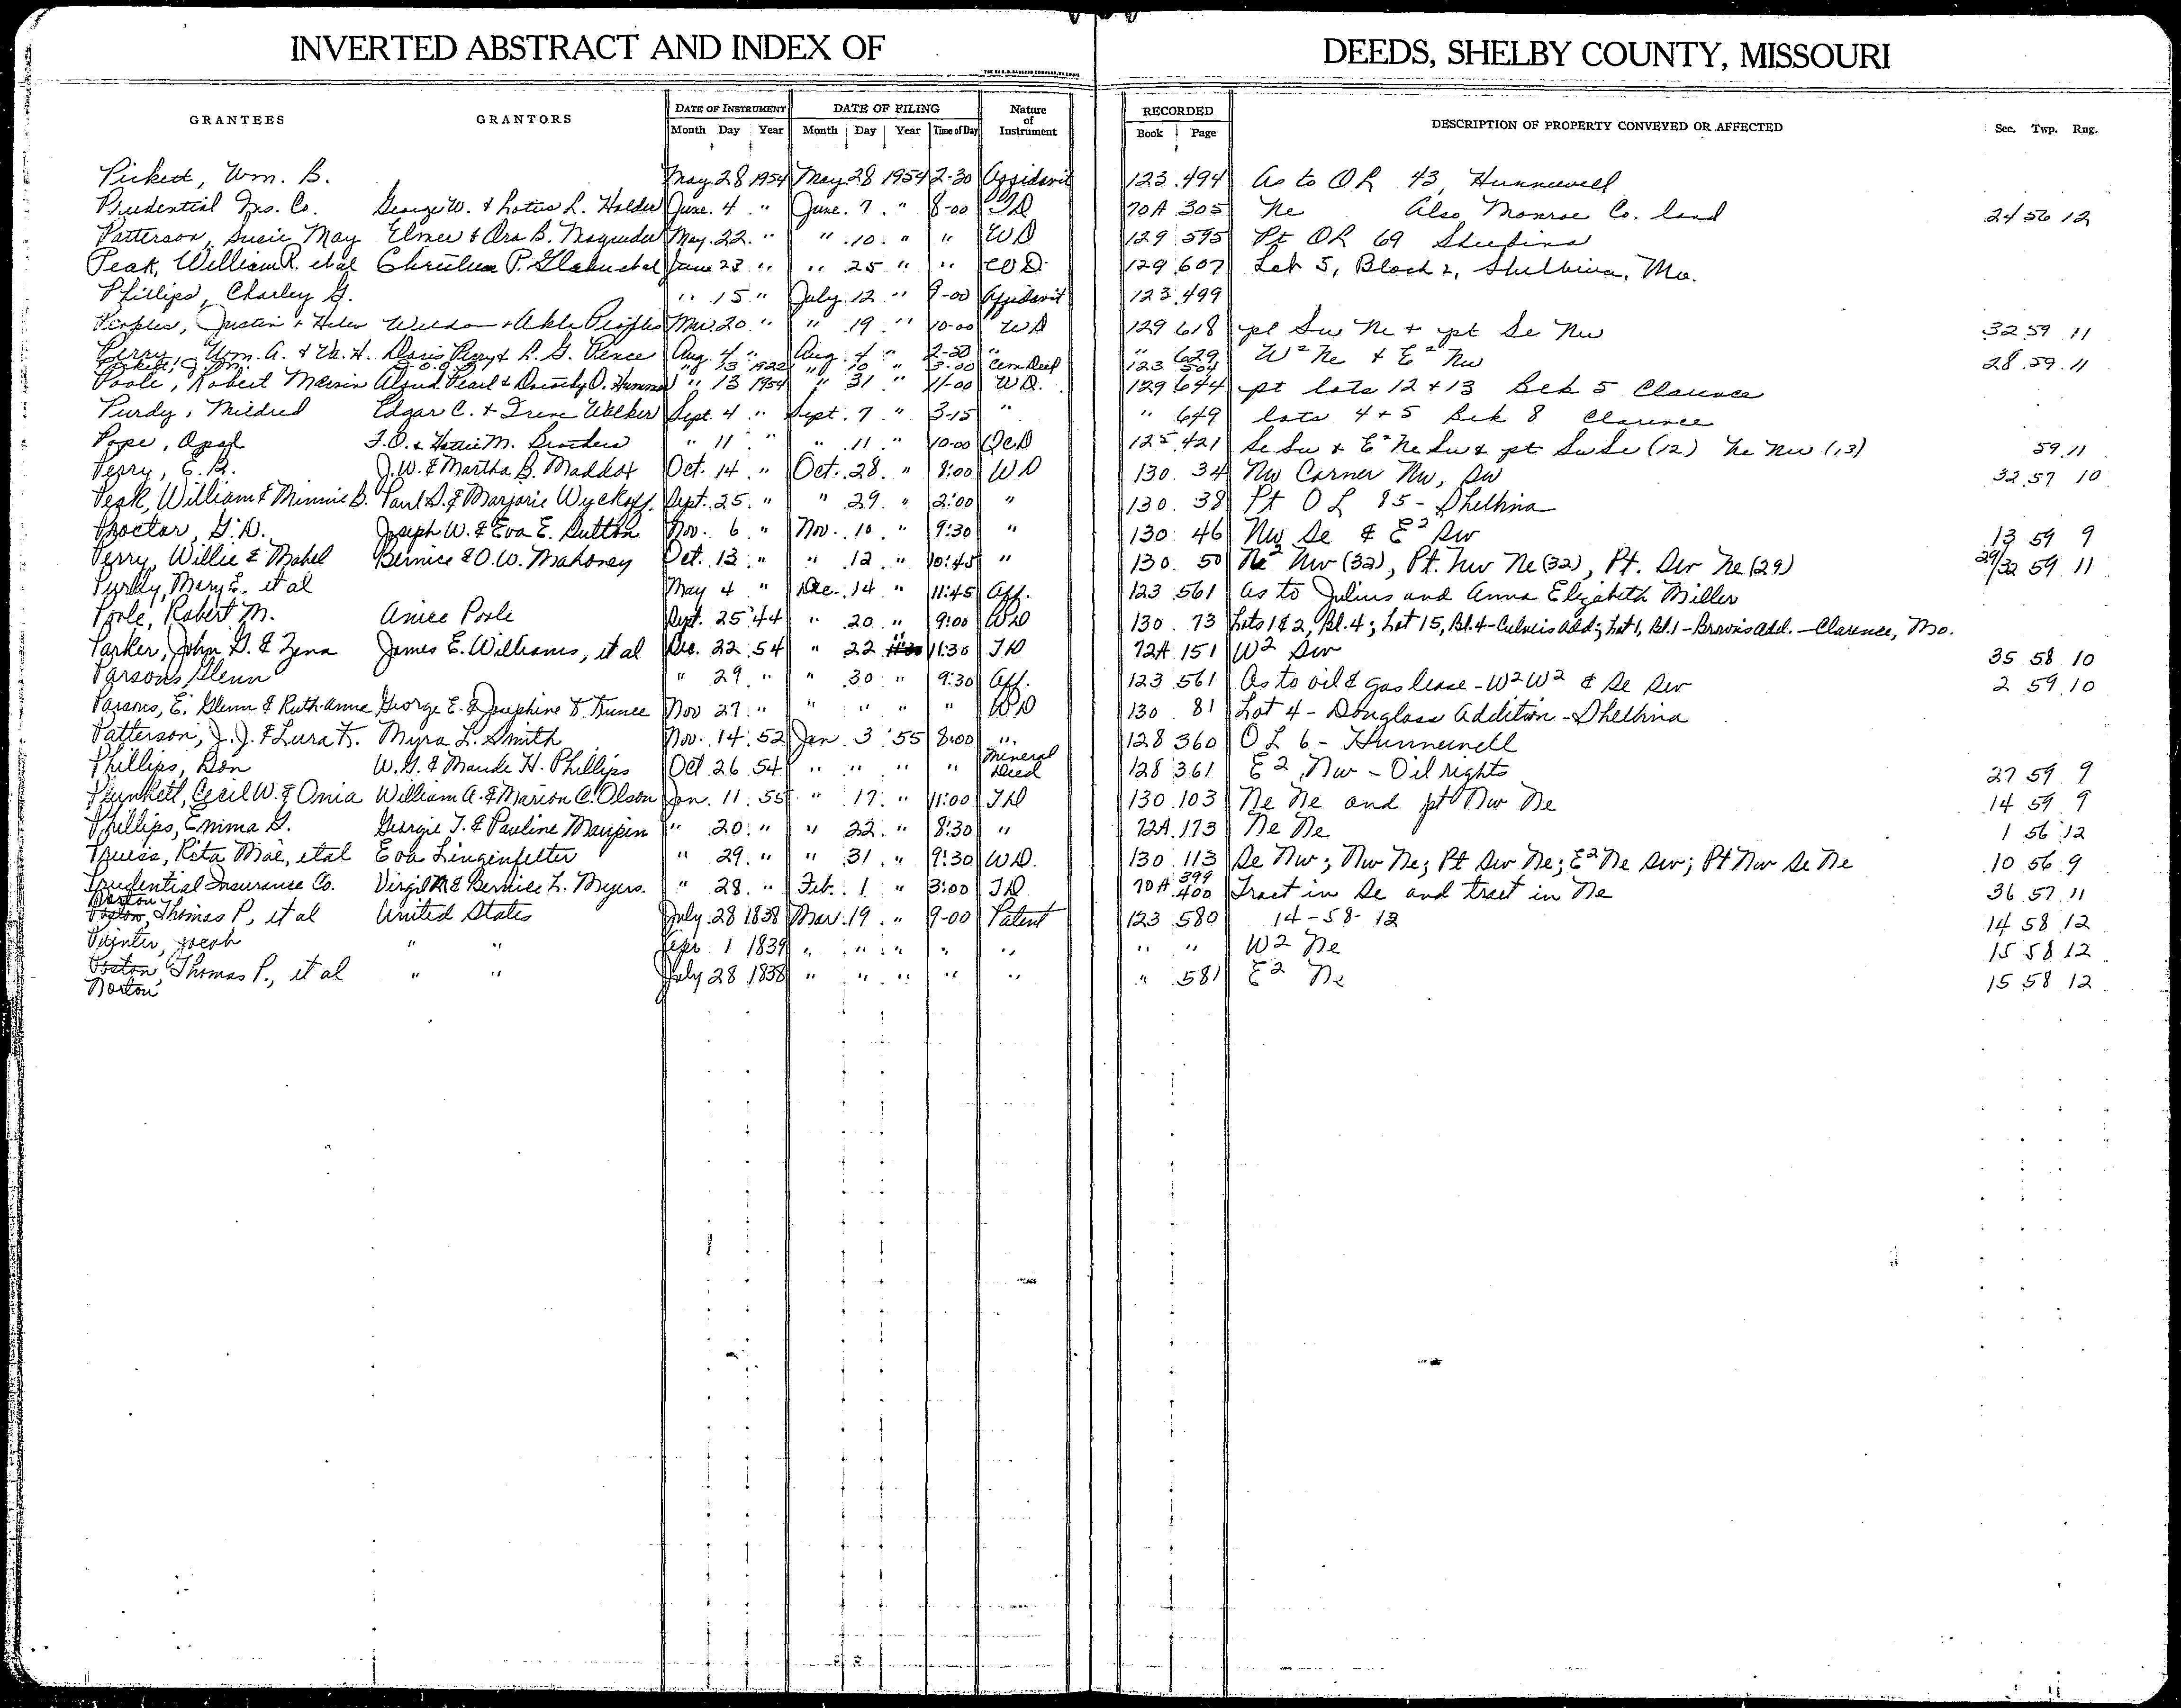 INVERTED ABSTRACT AND INDEX OF DEEDS, SHELBY COUNTY, MISSOURI
GRANTEES GRANTORS DATE OF INSTRUMENT DATE OF FILING Nature of Instrument RECORDED DESCRIPTION OF PROPERTY CONVEYED OR AFFECTED Sec. Twp. Rng.
Month Day Year Month Day Year Time of Day Book Page
Pickett, Wm. B. May 28 1954 May 28 1954 2-30 Affidavit 123 494 As to OL 43, Hunnewell
Prudential Ins. Co. George W. & Lotus L. Holder June 4 " June 7 " 8-00 TD 70A 305 Ne Also Monroe Co. land 24 56 12
Patterson, Susie May Elmer & Ora B. Magruder May 22 " " 10 " " WD 129 595 Pt OL 69 Shelbina
Peak, William R. et al P. et al June 23 " " 25 " " WD 129 607 Lot 5, Block 2, Shelbina, Mo.
Phillips, Charley G. " 15 " July 12 " 9-00 Affidavit 123 499
Peoples, Justin & Helen Weldon & Peoples 20 " " 19 " 10-00 WD 129 618 pt Sw Ne & pt Se Nw 32 59 11
Perry, Wm. A. & Doris Perry & L. G. Pence Aug. 4 " Aug. 4 " 2-30 " " 629 W2 Ne & E2 Nw 28 59 11
" 13 1922 " 10 " 3-00 Cem Deed 123 504
Poole, Robert Marvin Pearl & Dorothy O. " 13 1954 " 31 " 11-00 WD. 129 644 pt lots 12 + 13 Blk 5 Clarence
Purdy, Mildred Edgar C. & Irene Walker Sept. 4 " Sept. 7 " 3-15 " " 649 lots 4 + 5 Blk 8 Clarence
Pope, Opal & Hattie M. " 11 " " 11 " 10-00 QCD 125 421 Se Sw & E2 Ne Sw & pt Sw Se (12) Ne Nw (13) 59 11
Perry, E. B. J. W. & Martha B. Maddox Oct. 14 " Oct. 28 " 8:00 WD 130 34 Nw Corner Nw, Sw 32 57 10
Peak, William & Minnie B. Paul D. & Marjorie Wyckoff. Sept. 25 " " 29 " 2:00 " 130 38 Pt OL 85 - Shelbina
Proctor, G. D. Joseph W. & Eva E. Sutton Nov. 6 " Nov. 10 " 9:30 " 130 46 Nw Se & E2 Sw 13 59 9
Perry, Willie & Mabel Bernice & O. W. Mahoney Oct. 13 " " 12 " 10:45 " 130 50 Ne2 Nw (32), Pt. Nw Ne (32), Pt. Sw Ne (29) 29/32 59 11
Purdy, Mary E. et al May 4 " Dec. 14 " 11:45 Aff. 123 561 As to Julius and Anna Elizabeth Miller
Poole, Robert M. Anice Poole Sept. 25 44 " 20 " 9:00 WD 130 73 Lots 1 & 2, Bl. 4; Lot 15, Bl. 4 - Add; Lot 1, Bl. 1 - Brown's Add. - Clarence, Mo.
Parker, John G. & Zena James E. Williams, et al Dec. 22 54 " 22 11:30 TD 72A 151 W2 Sw 35 58 10
Parsons, Glenn " 29 " " 30 " 9:30 Aff. 123 561 As to oil & gas lease - W2 W2 & Se Sw 2 59 10
Parsons, E. Glenn & Ruth Anna George E. & Josephine D. Nov 27 " " " " " WD 130 81 Lot 4 - Douglass Addition - Shelbina
Patterson, J. J. & Lura F. Myra L. Smith Nov. 14 52 Jan 3 '55 8:00 " 128 360 OL 6 - Hunnewell
Phillips, Don W. G. & Maude H. Phillips Oct 26 54 " " " " Mineral Deed 128 361 E2 Nw - Oil rights 27 59 9
Plunkett, Cecil W. & Onia William A. & Marion C. Olson Jan. 11 55 " 17 " 11:00 TD 130 103 Ne Ne and pt Nw Ne 14 59 9
Phillips, Emma G. Georgie T. & Pauline Maupin " 20 " " 22 " 8:30 " 72A 173 Ne Ne 1 56 12
Pruess, Rita Mae, et al Eva Lingenfelter " 29 " " 31 " 9:30 WD. 130 113 Se Nw; Nw Ne; Pt Sw Ne; E2 Ne Sw; Pt Nw Se Ne 10 56 9
Prudential Insurance Co. Virgil R. & Bernice L. Myers. " 28 " Feb. 1 " 3:00 TD 70A 399 400 Tract in Se and tract in Ne 36 57 11
Norton
Poston, Thomas P., et al United States July 28 1838 Mar. 19 " 9-00 Patent 123 580 14-58-12 14 58 12
Painter, Jacob " " Sept. 1 1839 " " " " " " " W2 Ne 15 58 12
Poston, Thomas P., et al " " July 28 1838 " " " " " " 581 E2 Ne 15 58 12
Norton